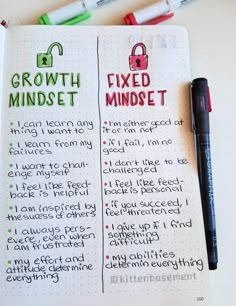 GROWTH
MINDSET
I can learn any
thing I want to
I learn from my
failures
I want to chall-
enge myself
I feel like feed-
back is helpful
I am inspired by
the success of others
I always pers-
evere, even when
I am frustrated
my effort and
attitude determine
everything
FIXED
MINDSET
I'm either good at
it or I'm not
if I fail, I'm no
good
I don't like to be
challenged
I feel like feed-
back is personal
if you succeed, I
feel threatened
I give up if I find
something
difficult
my abilities
determin everything
@kittenbasement